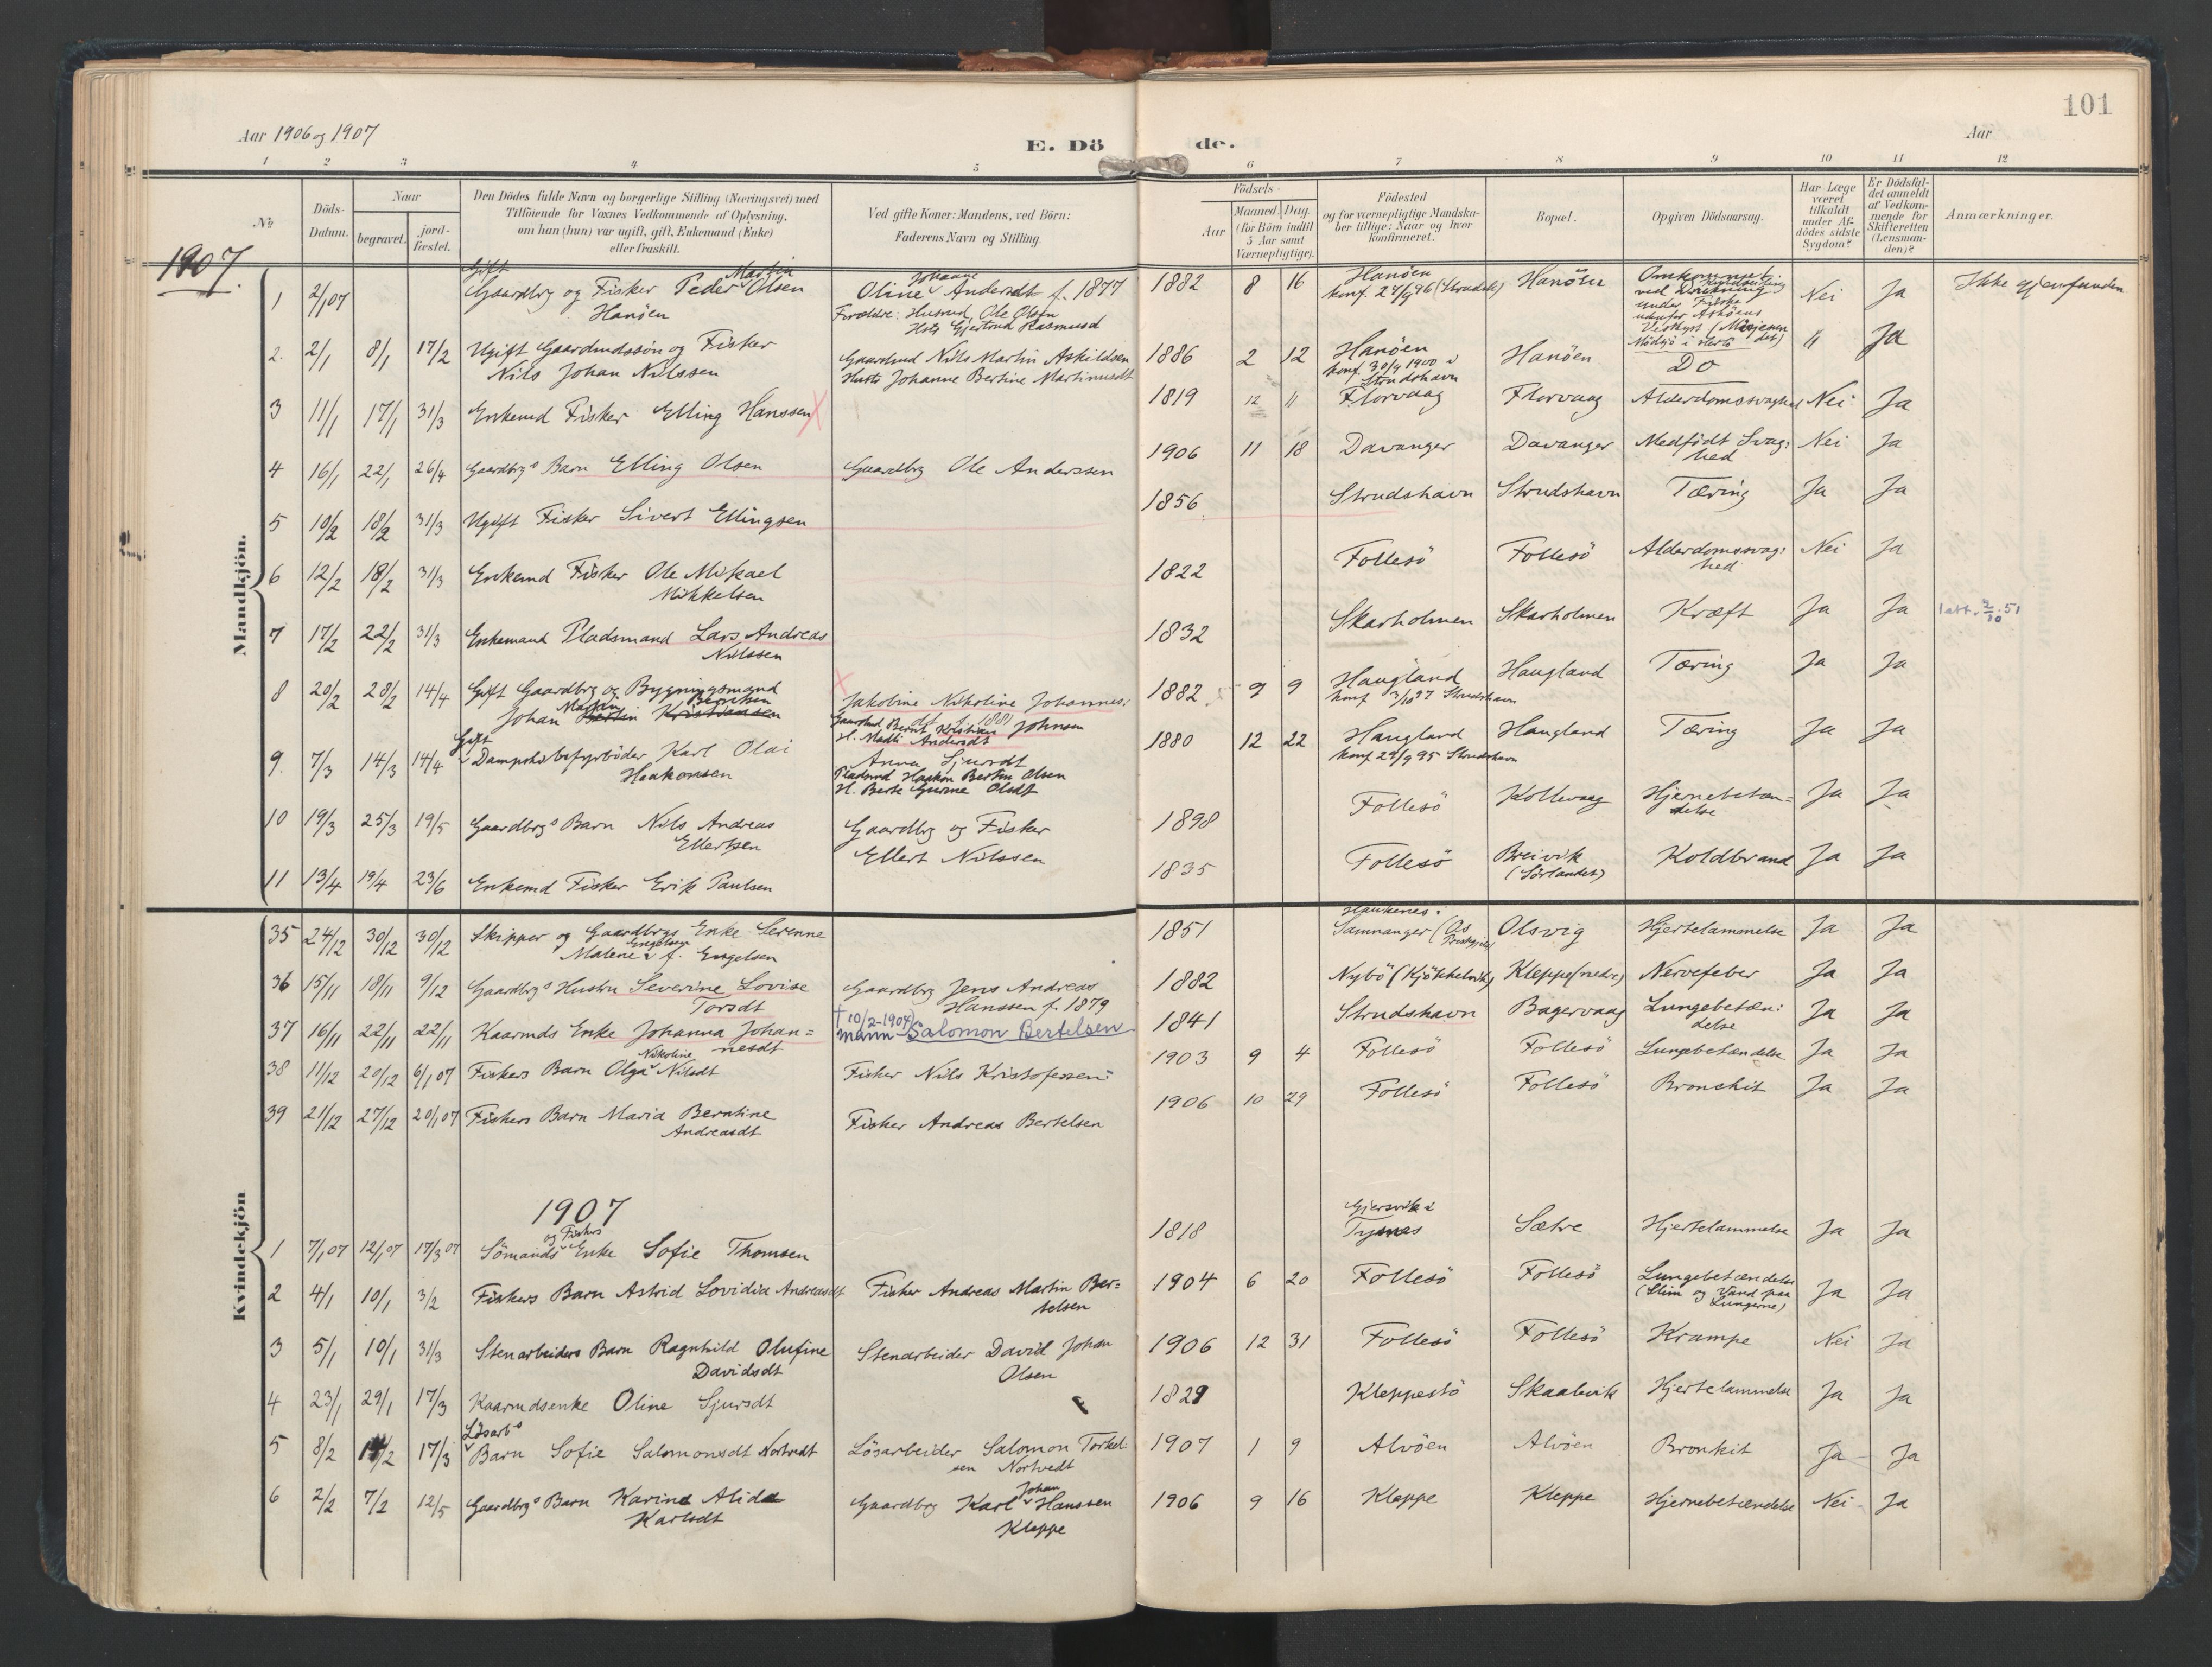 101
Aar 1906 og 1907
E. Dö
de.
Aar
1 2 3 4 5 6 7 8 9 10 11 12
No.
Döds-Datum.
Naar
begravet.
jord-fæstet.
Den Dödes fulde Navn og borgerlige Stilling (Næringsvei) med
Tilföiende for Voxnes Vedkommende af Oplysning,
om han (hun) var ugift, gift, Enkemand (Enke)
eller fraskilt.
Ved gifte Koner: Mandens, ved Börn:
Faderens Navn og Stilling.
Födsels-
Aar
Maaned. Dag.
(for Börn indtil
5 Aar samt
Værnepligtige).
Födested
og for værnepligtige Mandska-
ber tillige: Naar og hvor
konfirmeret.
Bopæl.
Opgiven Dödsaarsag.
Har Læge
været
tilkaldt
under Af-
dödes sidste
Sygdom?
Er Dödsfal-
det anmeldt
af Vedkom-
mende for
Skifteretten
(Lensman-
den)?
Anmærkninger.
1907.
Mandkjön.
1 2/1 07 Gift Gaardbrg og Fisker Peder Martin Olsen Hanöen Oline Johanne Andersdt f. 1877 Forældre: Husmd. Ole Olsen Hstr Gjertrud Rasmusd 1882 8 16 Hanöen konf. 27/9 96 (Strudsh) Hanöen Omkommet ved Drukning under Fiske udenfor Asköens Vestkyst Nei Ja Ikke gjenfunden
2. 2/1 8/1 17/2 Ugift Gaardmdssön og Fisker Nils Johan Nilssen Gaardmd Nils Martin Askildsen Hustr Johanne Bertine Martinusdt 1886 2 12 Hanöen konf. 30/9 1900 i Strudshavn Hanöen Do " Ja
3 11/1 17/1 31/3 Enkemd Fisker Elling Hanssen X 1819 12 11 Florvaag Florvaag Alderdomssvaghed Nei Ja
4 16/1 22/1 26/4 Gaardbrgs Barn Elling Olsen Gaardbrg Ole Anderssen 1906 11 18 Davanger Davanger Medfödt Svag: hed Nei Ja
5 10/2 18/2 31/3 Ugift Fisker Sivert Ellingsen 1856 Strudshavn Strudshavn Tæring Ja Ja
6 12/2 18/2 31/3 Enkemd Fisker Ole Mikael Mikkelsen 1822 Follesö Follesö Alderdomssvag: hed Nei Ja
7 17/2 22/2 31/3 Enkemand Pladsmand Lars Andreas Nilssen 1832 Skarholmen Skarholmen Kræft Ja Ja 1att. 2/10.51
8 20/2 28/2 14/4 Gift Gaardbrg og Bygningsmand Johan Martin Berntsen Kristiansen X Jakobine Nikoline Johannes: dt f. 1881 Gaardmd Bernt Kristian Johnsen H. Madli Andersdt 1882 9 9 Haugland konf 3/10 97 Strudshavn Haugland Tæring Ja Ja
9. 7/3 14/3 14/4 Gift Dampskibsfyrböder Karl Olai Haakonsen Anna Sjursdt Pladsmd Haakon Bertin Olsen H. Berte Gurine Olsdt 1880 12 22 Haugland konf 29/9 95 Strudshavn Haugland Tæring Ja Ja
10 19/3 25/3 19/5 Gaardbrgs Barn Nils Andreas Ellertsen Gaardbrg og Fisker Ellert Nilssen 1898 Follesö Kollevaag Hjernebetæn= delse Ja Ja
11 13/4 19/4 23/6 Enkemd Fisker Erik Paulsen 1835 Follesö Breivik (Sörlandet) Koldbrand Ja Ja
Kvindekjön
35 24/12 30/12 30/12 Skipper og Gaardbrgs Enke Serenne Malene Engelsen f. Engelsen 1851 Haukenes i Samnanger (Os Olsvig Hjertelammelse Ja Ja
36 15/11 18/11 9/12 Gaardbrgs Hustru Severine Lovise Torsdt Gaardbrg Jens Andreas Hanssen f. 1879 1882 Nybö (Kjökkelvik) Kleppe (nedre) Nervefeber Ja Ja
37 16/11 22/11 22/11 Kaarmds Enke Johanna Johan= nesdt † 10/2-1904 mann Salomon Bertelsen 1841 Strudshavn Bagervaag Lungebetæn: delse Ja Ja
38 11/12 20/12 6/1 07 Fiskers Barn Olga Nikoline Nilsdt Fisker Nils Kristofersen 1903 9 4 Follesö Follesö Lungebetændelse Ja Ja
39 21/12 27/12 20/1 07 Fiskers Barn Maria Berntine Andreasdt Fisker Andreas Bertelsen 1906 10 29 Follesö Follesö Bronchit Ja Ja
1907
1 7/1 07 12/1 07 17/3 07 Sömands og Fiskers Enke Sofie Thomsen 1818 Gjersvik i Tysnes Sætre Hjertelammelse Ja Ja
2 4/1 10/1 3/2 Fiskers Barn Astrid Lovidia Andreasdt Fisker Andreas Martin Ber= telsen 1904 6 20 Follesö Follesö Lungebetændelse (Slim og Vand paa Lungerne) Ja Ja
3 5/1 10/1 31/3 Stenarbeiders Barn Ragnhild Olufine Davidsdt Stenarbeider David Johan Olsen 1906 12 31 Follesö Follesö Krampe Nei Ja
4 23/1 29/1 17/3 Kaarmdsenke Oline Sjursdt 1829 Kleppestö Skaalevik Hjertelammelse Ja Ja
5 8/2 14/2 17/3 Lösarbs Barn Sofie Salomonsdt Nortvedt Lösarbeider Salomon Torkel: sen Nortvedt 1907 1 9 Alvöen Alvöen Bronkit Ja Ja
6 2/2 7/2 12/5 Gaardbrgs Barn Karine Alida Karlsdt Gaardbrg Karl Johan Hanssen Kleppe 1906 9 16 Kleppe Kleppe Hjernebetændelse Nei Ja